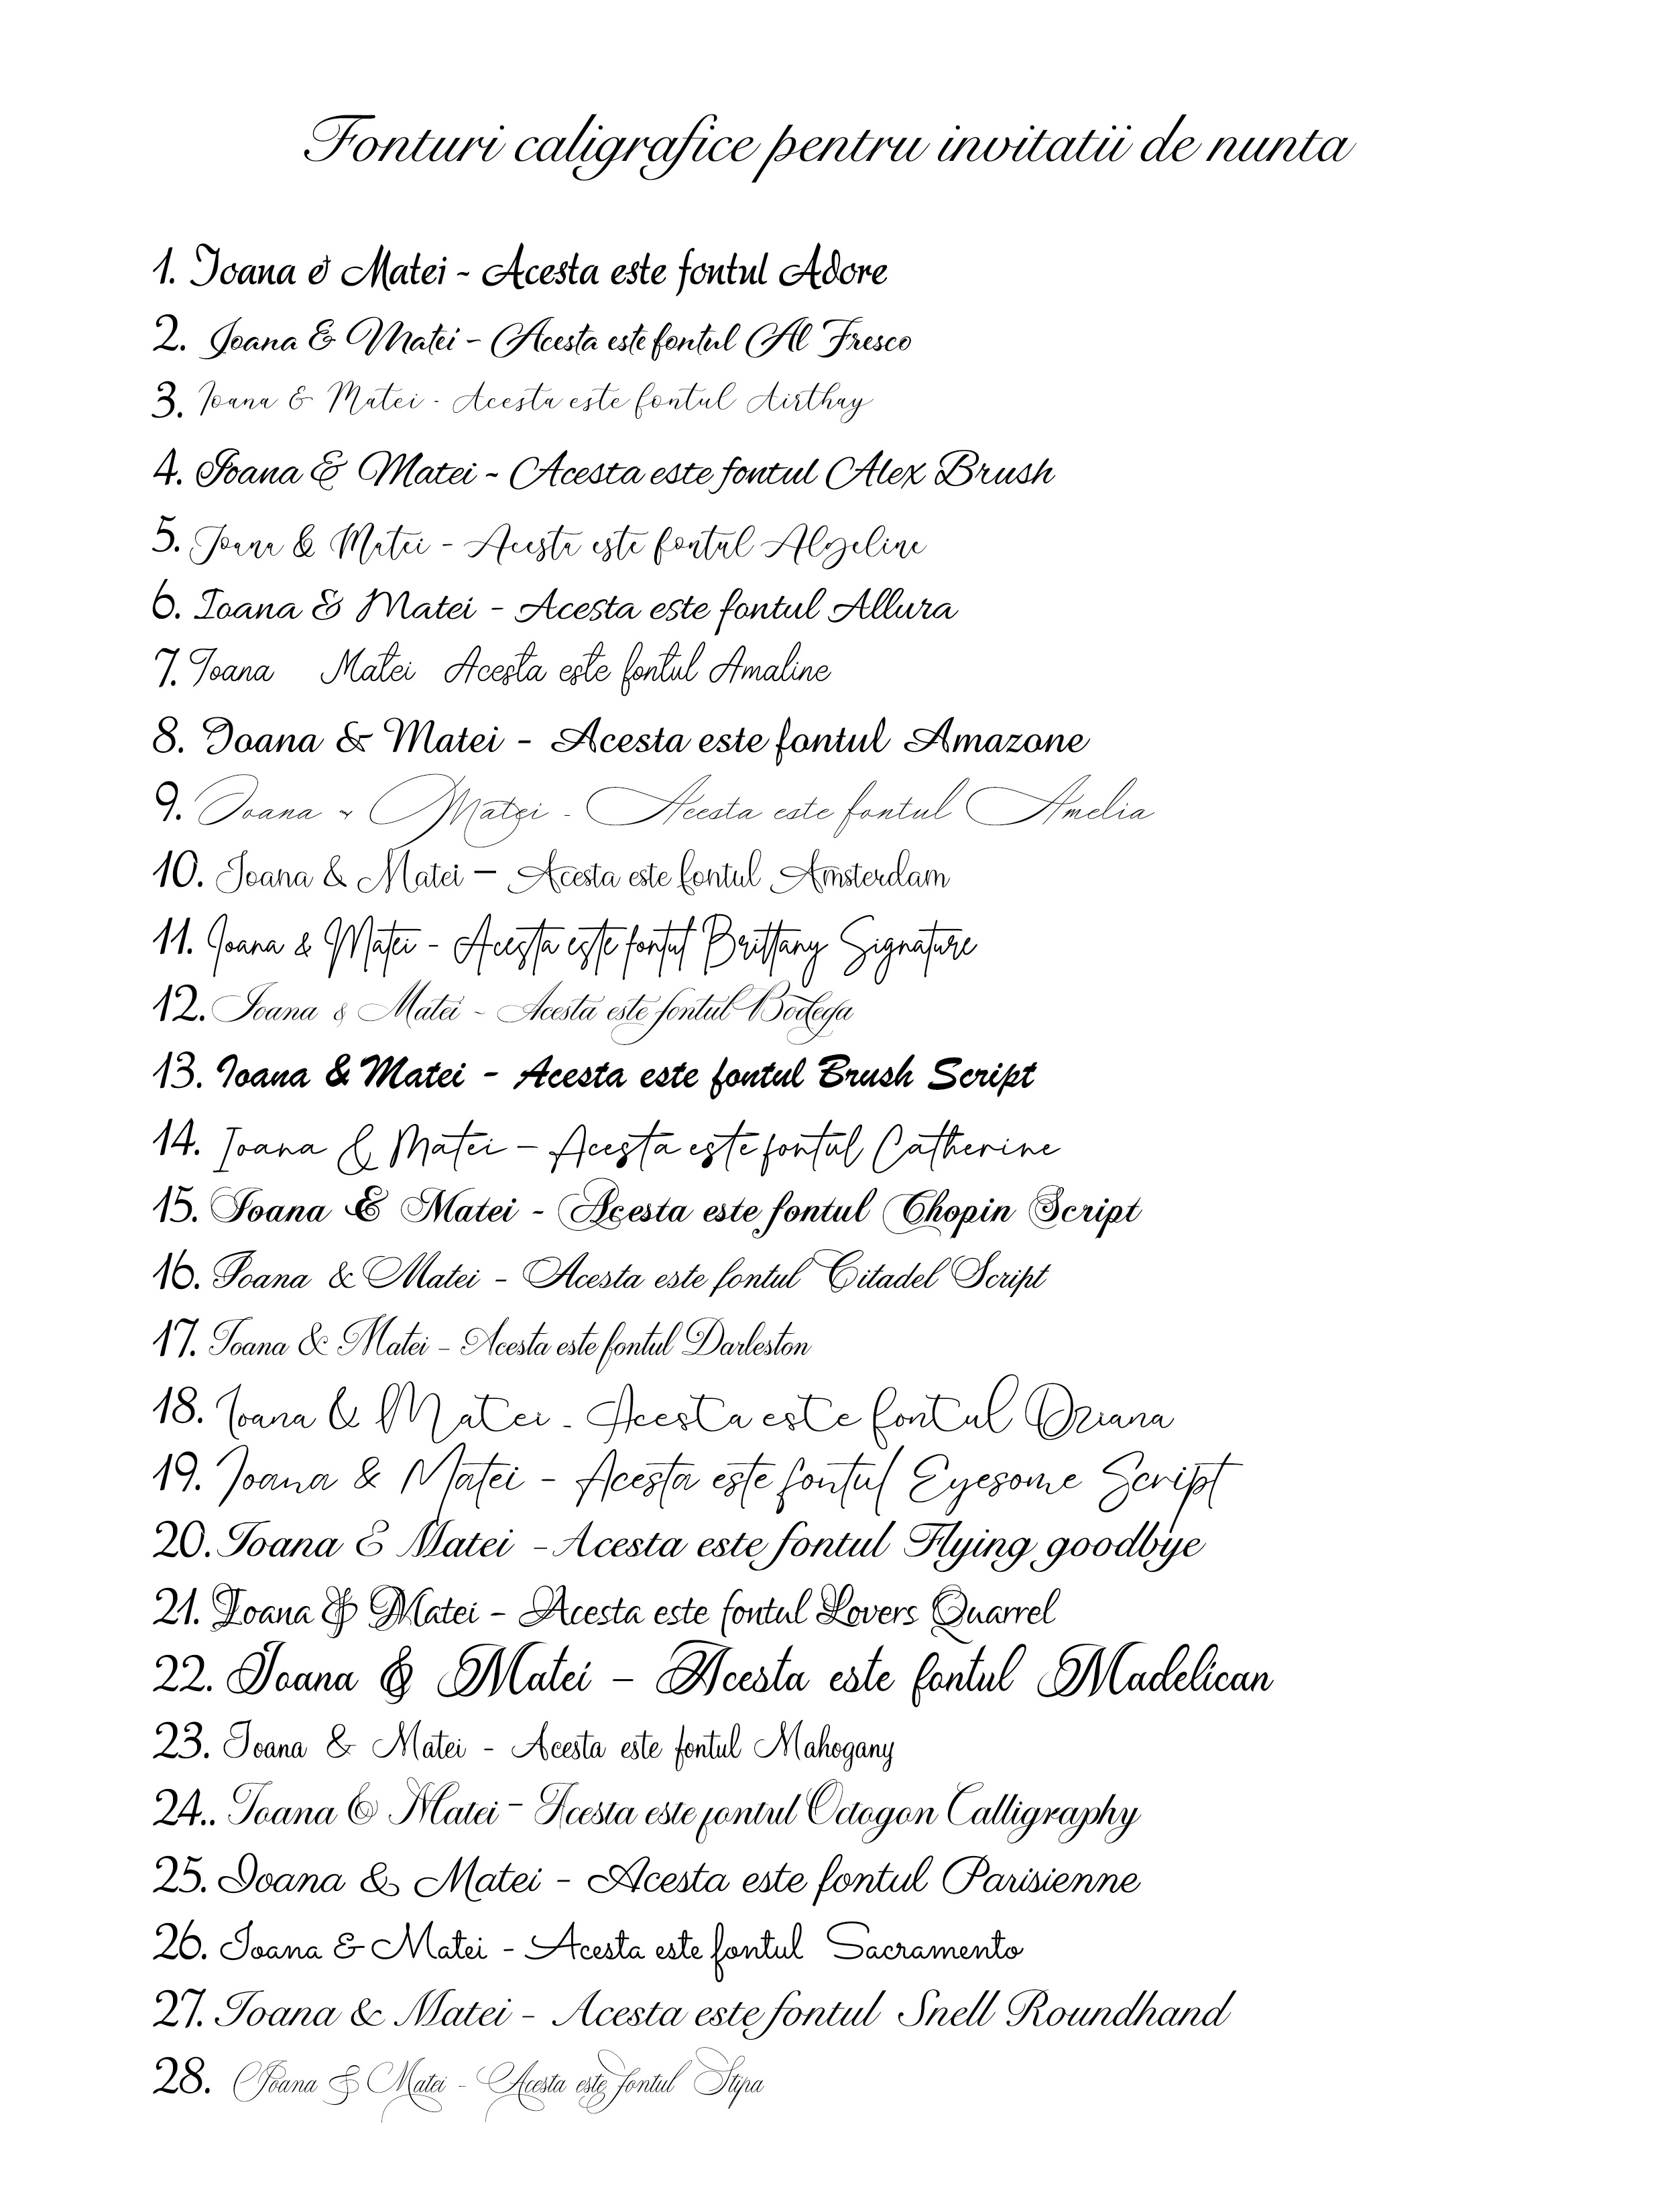 Fonturi caligrafice pentru invitatii de nunta
1. Ioana & Matei - Acesta este fontul Adore
2. Ioana & Matei - Acesta este fontul Al Fresco
3. Ioana & Matei - Acesta este fontul Airthay
4. Ioana & Matei - Acesta este fontul Alex Brush
5. Ioana & Matei - Acesta este fontul Algeline
6. Ioana & Matei - Acesta este fontul Allura
7. Ioana Matei Acesta este fontul Amaline
8. Ioana & Matei - Acesta este fontul Amazone
9. Ioana & Matei - Acesta este fontul Amelia
10. Ioana & Matei – Acesta este fontul Amsterdam
11. Ioana & Matei - Acesta este fontul Brittany Signature
12. Ioana & Matei - Acesta este fontul Bodega
13. Ioana & Matei - Acesta este fontul Brush Script
14. Ioana & Matei – Acesta este fontul Catherine
15. Ioana & Matei - Acesta este fontul Chopin Script
16. Ioana & Matei - Acesta este fontul Citadel Script
17. Ioana & Matei - Acesta este fontul Darleston
18. Ioana & Matei - Acesta este fontul Oziana
19. Ioana & Matei - Acesta este fontul Eyesome Script
20. Ioana & Matei - Acesta este fontul Flying goodbye
21. Ioana & Matei - Acesta este fontul Lovers Quarrel
22. Ioana & Matei – Acesta este fontul Madelican
23. Ioana & Matei - Acesta este fontul Mahogany
24.. Ioana & Matei - Acesta este fontul Octogon Calligraphy
25. Ioana & Matei - Acesta este fontul Parisienne
26. Ioana & Matei - Acesta este fontul Sacramento
27. Ioana & Matei - Acesta este fontul Snell Roundhand
28. Ioana & Matei - Acesta este fontul Stipa